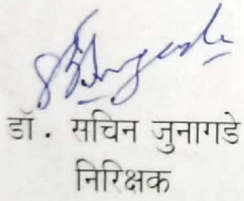 डॉ. सचिन जुनागडे
निरिक्षक